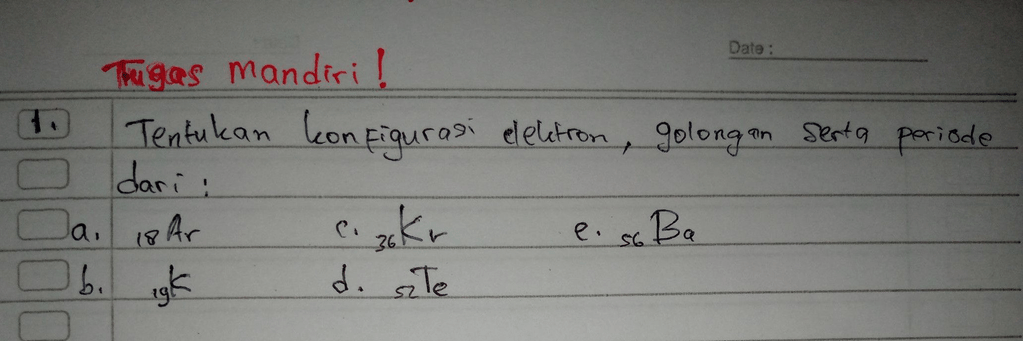 Date :
Tugas mandiri !
1. Tentukan konfigurasi elektron, golongan serta periode
dari :
a. 18Ar c. 36Kr e. 56Ba
b. 19K d. 52Te